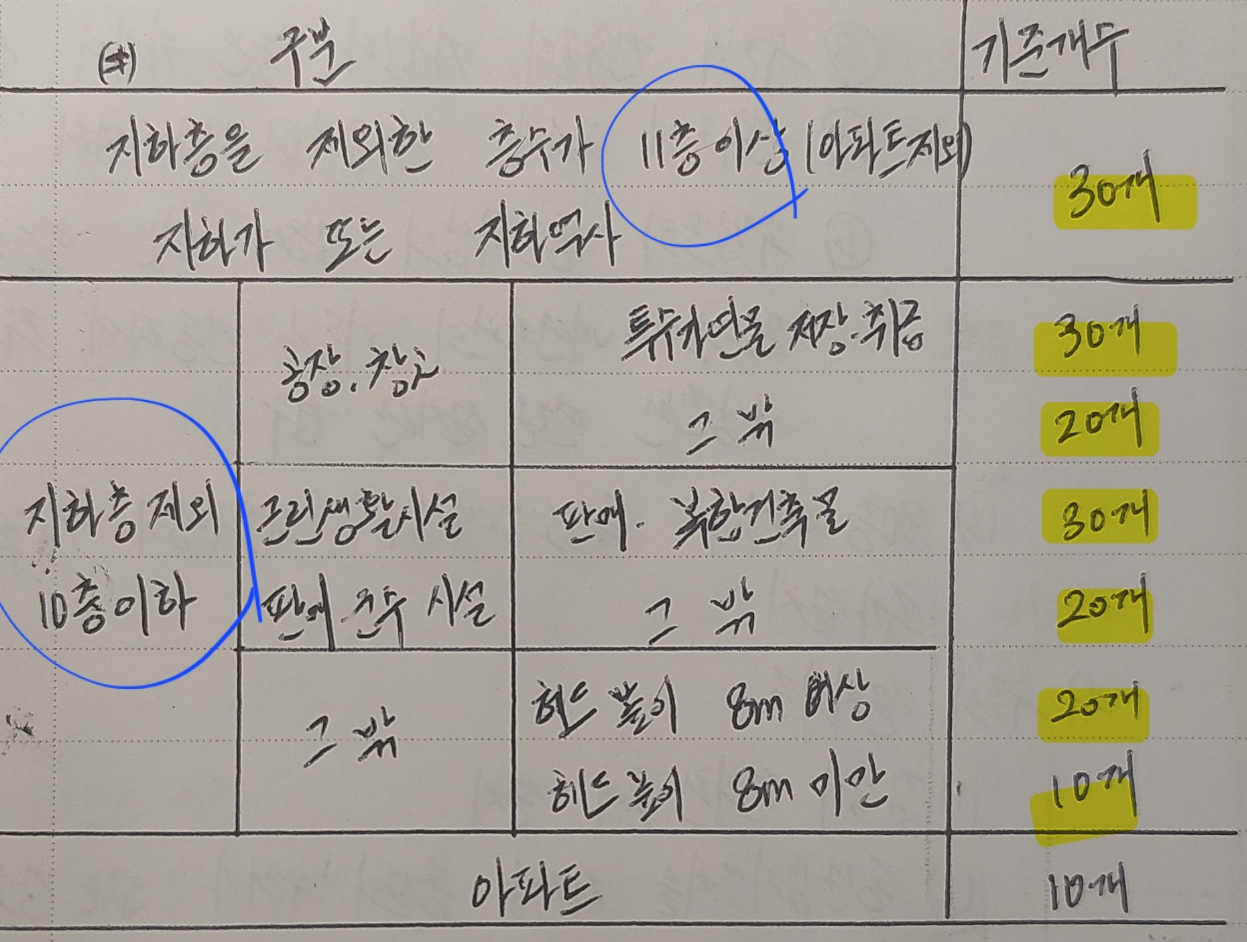 (수) 구분 기준개수
지하층을 제외한 층수가 11층이상 (아파트제외)
지하가 또는 지하역사
30개
공장.창고
특수가연물 저장.취급 30개
그 밖 20개
지하층 제외
10층이하
근린생활시설
판매 운수 시설
판매. 복합건축물 30개
그 밖 20개
그 밖
헤드 높이 8m 이상 20개
헤드 높이 8m 미만 10개
아파트 10개